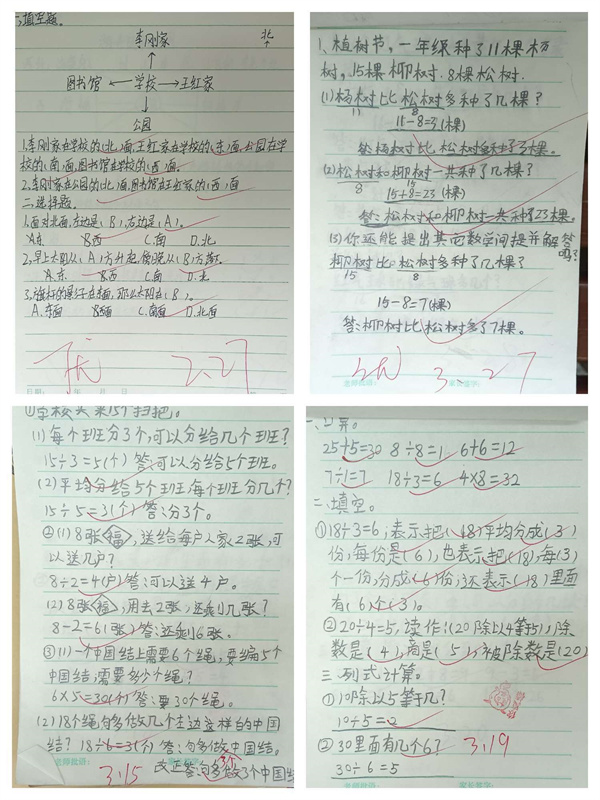 一,填空题。
李刚家
北
图书馆 ← 学校 → 王红家
公园
1.李刚家在学校的(北)面,王红家在学校的(东)面,公园在学
校的(南)面,图书馆在学校的(西)面。
2.李刚家在公园的(北)面,图书馆在王红家的(西)面
二、选择题。
1.面对北面,左边是(B),右边是(A)。
A.东 B.西 C.南 D.北
2.早上太阳从(A)方升起,傍晚从(B)方落下。
A.东 B.西 C.南 D.北
3.旗杆的影子在东面,那么太阳在(B)。
A.东面 B.西面 C.南面 D.北面
优 2.27
1、植树节,一年级种了11棵杨
树,15棵柳树.8棵松树.
(1)杨树比松树多种了几棵?
11 8
11-8=3(棵)
答:杨树比松树多种了3棵。
(2)松树和柳树一共种了几棵?
8 15
15+8=23(棵)
答:松树和柳树一共种了23棵。
(3)你还能提出其他数学问提并解答吗?
柳树比松树多种了几棵?
15 8
15-8=7(棵)
答:柳树比松树多了7棵。
优 3.27
老师批语: 家长签字:
①学校买来15个扫把。
(1)每个班分3个,可以分给几个班?
15÷3=5(个)答:可以分给5个班。
(2)平均分给5个班,每个班分几个?
15÷5=3(个)答:分3个。
②(1)8张福,送给每户人家2张,可
以送几户?
8÷2=4(户)答:可以送4户。
(2)8张福,用去2张,还剩几张?
8-2=6(张)答:还剩6张。
③(1)一个中国结上需要6个绳,要编5个
中国结,需要多少个绳?
6×5=30(个)答:要30个绳。
(2)18个绳句多做几个左边这样的中国
结?18÷6=3(个)答:句多做中国结。
3个
老师批语:
3.15 改正答:句多做3个中国结
一、口算。
25+5=30 8÷8=1 6+6=12
7÷1=7 18÷3=6 4×8=32
二、填空。
①18÷3=6,表示把(18)平均分成(3)
份,每份是(6),也表示把(18),每(3)
个一份,分成(6)份,还表示(18)里面
有(6)个(3)。
②20÷4=5,读作:(20除以4等于5),除
数是(4),商是(5),被除数是(20)
三、列式计算。
①10除以5等于几?
10÷5=2
②30里面有几个6? 3.19
30÷6=5